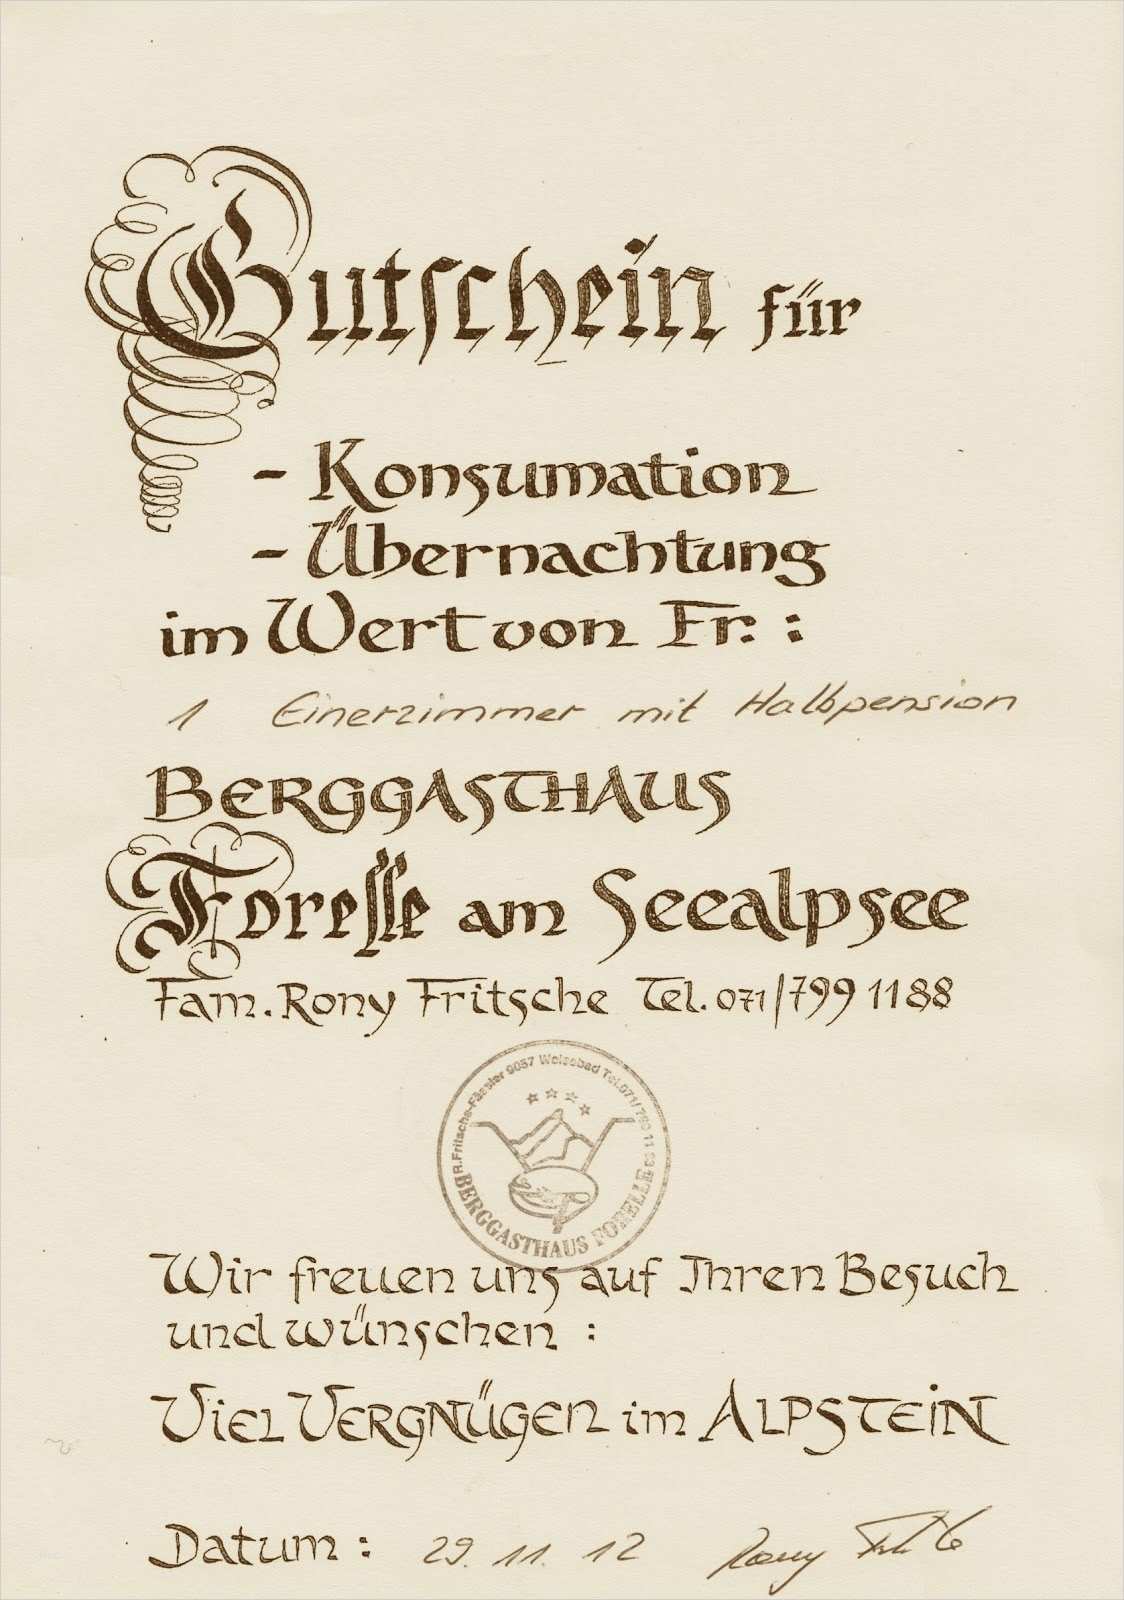 Gutschein für
- Konsumation
- Übernachtung
im Wert von Fr. :
1 Einerzimmer mit Halbpension
BERGGASTHAUS
Forelle am Seealpsee
Fam. Rony Fritsche Tel. 071/799 11 88
R. Fritsche-Fässler 9057 Weissbad Tel. 071/ 799 11 88
BERGGASTHAUS FORELLE
Wir freuen uns auf Ihren Besuch
und wünschen :
VIEL VERGNÜGEN im ALPSTEIN
Datum : 29. 11. 12 Rony